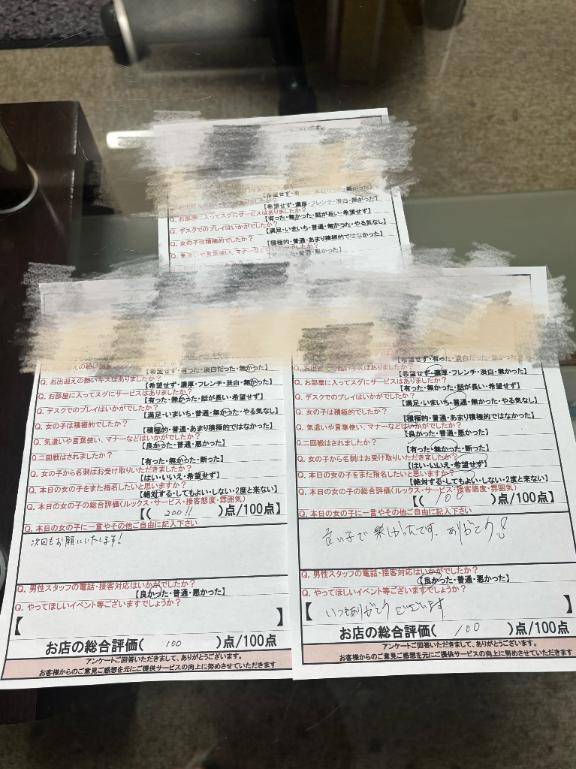 Q. お部屋に入ってスグにサービスはありましたか？
【希望せず・濃厚・フレンチ・淡白・無かった】
Q. デスクでのプレイはいかがでしたか？
【有った・無かった・話が長い・希望せず】
Q. 女の子は積極的でしたか？
【満足・いまいち・普通・無かった・やる気なし】
【積極的・普通・あまり積極的ではなかった】
【希望せず・有った・淡白だった・無かった】
Q. お出迎えの熱いキスはありましたか？
【希望せず・濃厚・フレンチ・淡白・無かった】
Q. お部屋に入ってスグにサービスはありましたか？
【有った・無かった・話が長い・希望せず】
Q. デスクでのプレイはいかがでしたか？
【満足・いまいち・普通・無かった・やる気なし】
Q. 女の子は積極的でしたか？
【積極的・普通・あまり積極的ではなかった】
Q. 気遣いや言葉使い、マナーなどはいかがでしたか？
【良かった・普通・悪かった】
Q. 二回戦はされましたか？
【有った・無かった・断った】
Q. 女の子から名刺はお受け取りいただきましたか？
【はい・いいえ・希望せず】
Q. 本日の女の子をまた指名したいと思いますか？
【絶対する・してもよい・しない・2度と来ない】
Q. 本日の女の子の総合評価（ルックス・サービス・接客態度・雰囲気）
【( 200!! )点/100点】
Q. 本日の女の子に一言やその他ご自由に記入下さい
次回もお願いいたします!
Q. 男性スタッフの電話・接客対応はいかがでしたか？
【良かった・普通・悪かった】
Q. やってほしいイベント等ございますでしょうか？
【
お店の総合評価( 100 )点/100点
アンケートご回答いただきまして、ありがとうございます。
お客様からのご意見ご感想を元にご提供サービスの向上に努めさせていただきます
【希望せず・有った・淡白だった・無かった】
【希望せず・濃厚・フレンチ・淡白・無かった】
Q. お部屋に入ってスグにサービスはありましたか？
【有った・無かった・話が長い・希望せず】
Q. デスクでのプレイはいかがでしたか？
【満足・いまいち・普通・無かった・やる気なし】
Q. 女の子は積極的でしたか？
【積極的・普通・あまり積極的ではなかった】
Q. 気遣いや言葉使い、マナーなどはいかがでしたか？
【良かった・普通・悪かった】
Q. 二回戦はされましたか？
【有った・無かった・断った】
Q. 女の子から名刺はお受け取りいただきましたか？
【はい・いいえ・希望せず】
Q. 本日の女の子をまた指名したいと思いますか？
【絶対する・してもよい・しない・2度と来ない】
Q. 本日の女の子の総合評価（ルックス・サービス・接客態度・雰囲気）
【( 100 )点/100点】
Q. 本日の女の子に一言やその他ご自由に記入下さい
良い子で楽しかったです、ありがとう!
Q. 男性スタッフの電話・接客対応はいかがでしたか？
【良かった・普通・悪かった】
Q. やってほしいイベント等ございますでしょうか？
【いつもありがとうございます】
お店の総合評価( 100 )点/100点
アンケートご回答いただきまして、ありがとうございます。
お客様からのご意見ご感想を元にご提供サービスの向上に努めさせていただきます